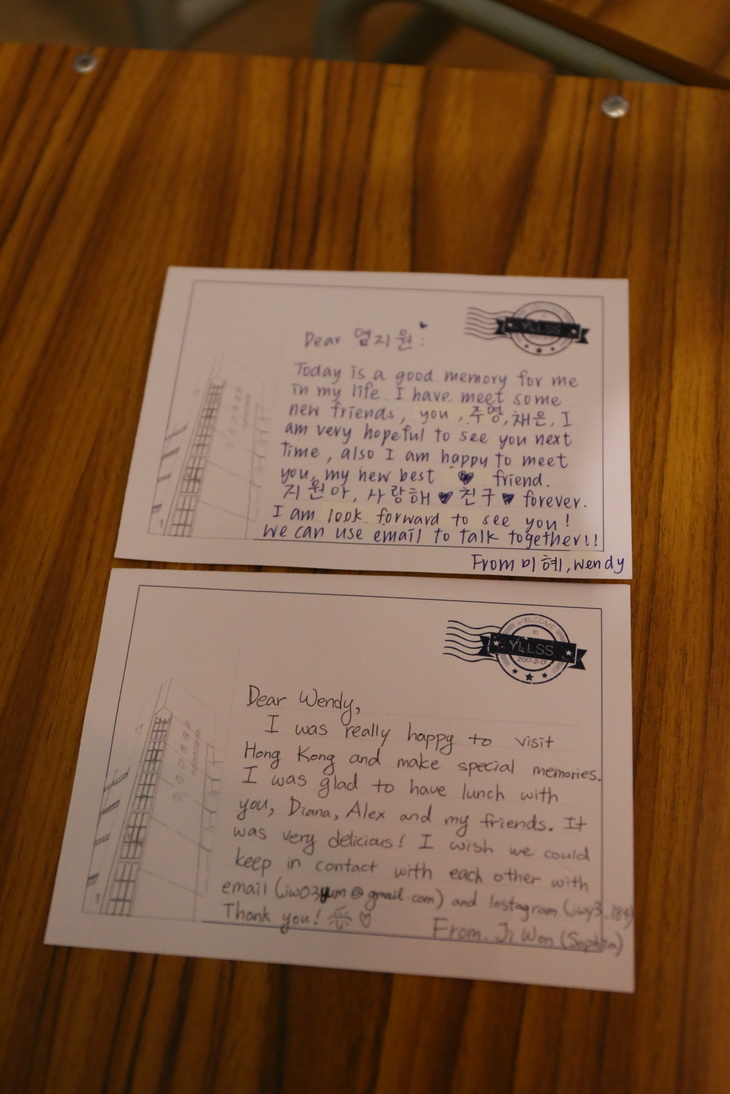 YLLSS
Dear 염지원 :
Today is a good memory for me
in my life. I have meet some
new friends, you, 주영, 채은, I
am very hopeful to see you next
time, also I am happy to meet
you, my new best ♥ friend.
지원아, 사랑해 ♥ 친구 ♥ forever.
I am look forward to see you!
We can use email to talk together!!
From 미혜, Wendy
WELCOME
YLLSS
Dear Wendy,
I was really happy to visit
Hong Kong and make special memories.
I was glad to have lunch with
you, Diana, Alex and my friends. It
was very delicious! I wish we could
keep in contact with each other with
email (jw03yum@gmail.com) and Instagram
Thank you! ♡
From. Ji Won (Sophia)